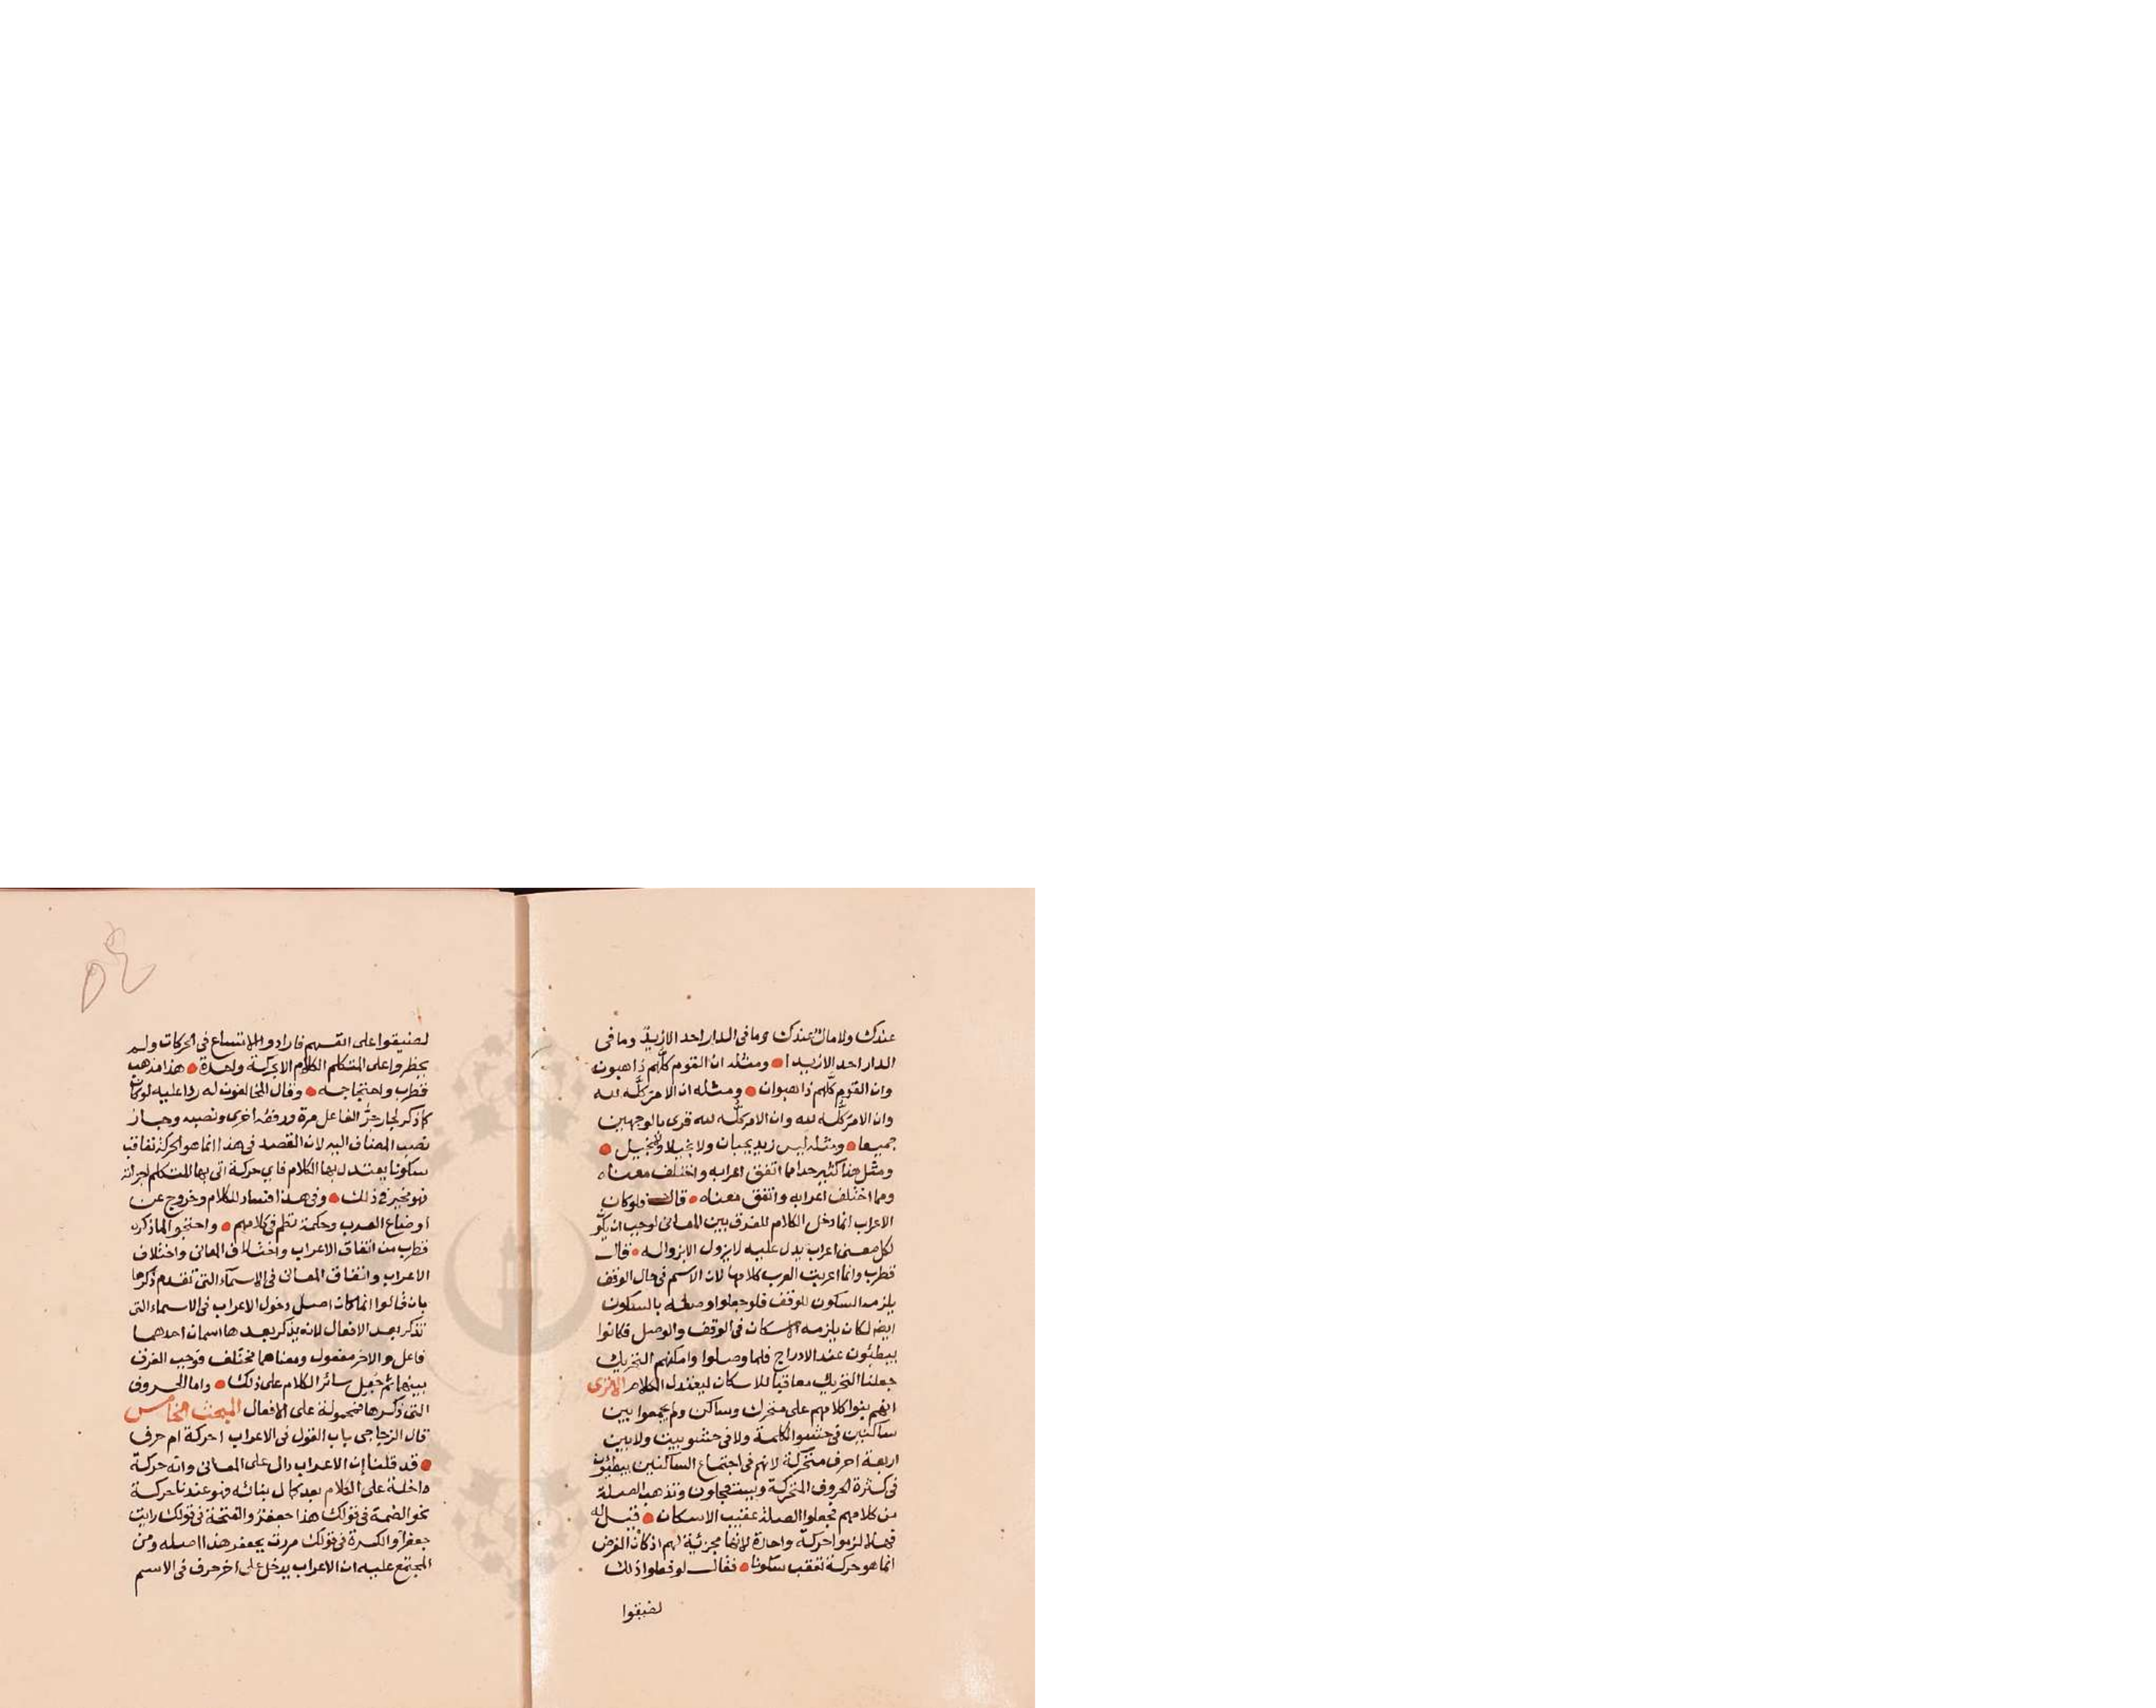 عندك ولا مال عندك وما في الدار احد الا زيد وما في
الدار احد الا زيدا ومثله ان القوم كلهم ذاهبون
وان القوم كلهم ذاهبوان ومثله ان الامر كله لله
وان الامر كله لله وان الامر كله لله قرى بالوجهين
جميعا ومثله ليس زيد بجبان ولا بخيلا ولا بخيل
ومثل هذا كثير جدا مما اتفق اعرابه واختلف معناه
ومما اختلف اعرابه واتفق معناه قال فلو كان
الاعراب انما دخل الكلام للفرق بين المعانى لوجب ان يكو
لكل معنى اعراب يدل عليه لا يزول الا بزواله قال
قطرب وانما اعربت العرب كلامها لان الاسم في حال الوقف
يلزمه السكون للوقف فلو جعلوا وصله بالسكون
ايضا لكان يلزمه الاسكان في الوقف والوصل فكانوا
يبطئون عند الادراج فلما وصلوا وامكنهم التحريك
جعلنا التحريك معاقبا للاسكان ليعتدل الكلام الا ترى
انهم بنوا كلامهم على متحرك وساكن ولم يجمعوا بين
ساكنين في حشو الكلمة ولا في حشو بيت ولا بين
اربعة احرف متحركة لانهم في اجتماع الساكنين يبطئون
في كثرة الحروف المتحركة ويستعجلون وتذهب المهلة
من كلامهم فجعلوا الحركة عقيب الاسكان قيل له
فهلا لزموا حركة واحدة لانها مجزئية لهم اذ كان الغرض
انما هو حركة تعقب سكونا فقال لو فعلوا ذلك
لضيقوا
لضيقوا على انفسهم فارادوا الاتساع في الحركات ولم
يحظروا على المتكلم الكلام الا بحركة واحدة هذا مذهب
قطرب واحتجاجه وقال المخالفون له ردا عليه لو كان
كما ذكر لجاز جر الفاعل مرة ورفعه اخرى ونصبه وجاز
نصب المضاف اليه لان القصد في هذا انما هو الحركة تعاقب
سكونا يعتدل بها الكلام فاي حركة اتى بها المتكلم اجزأته
فهو مخير في ذلك وفي هذا افساد للكلام وخروج عن
اوضاع العرب وحكمة نظم في كلامهم واحتجوا لما ذكره
قطرب من اتفاق الاعراب واختلاف المعانى واختلاف
الاعراب واتفاق المعانى في الاسماء التى تقدم ذكرها
بان قالوا انما كان اصل دخول الاعراب في الاسماء التى
تذكر بعد الافعال لانه يذكر بعدها اسمان احدهما
فاعل والاخر مفعول ومعناهما مختلف فوجب الفرق
بينهما ثم جعل سائر الكلام على ذلك واما الحروف
التى ذكرها فمحمولة على الافعال المبحث الخامس
قال الزجاجى باب القول في الاعراب احركة ام حرف
قد قلنا ان الاعراب دال على المعانى وانه حركة
داخلة على الكلام بعد كمال بنائه فهو عندنا حركة
نحو الضمة في قولك هذا جعفر والفتحة في قولك رايت
جعفرا والكسرة في قولك مررت بجعفر هذا اصله ومن
المجتمع عليه ان الاعراب يدخل على اخر حرف في الاسم